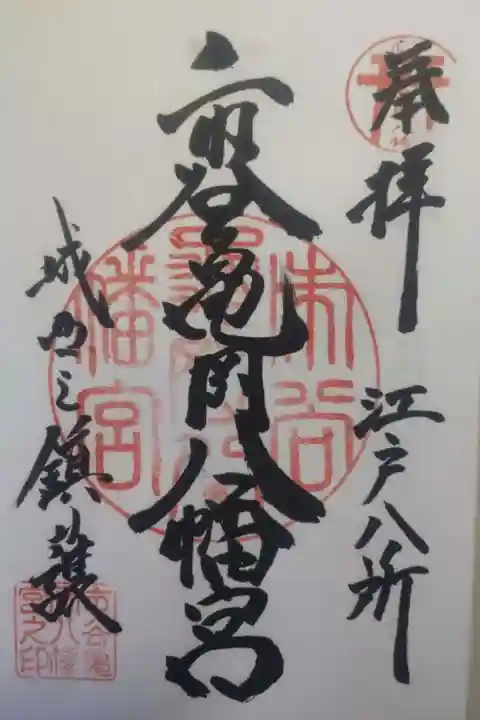 奉拝
江戸八所
市谷亀岡八幡宮
城西之鎮護
市谷
八幡宮
市谷亀
岡八幡
宮之印